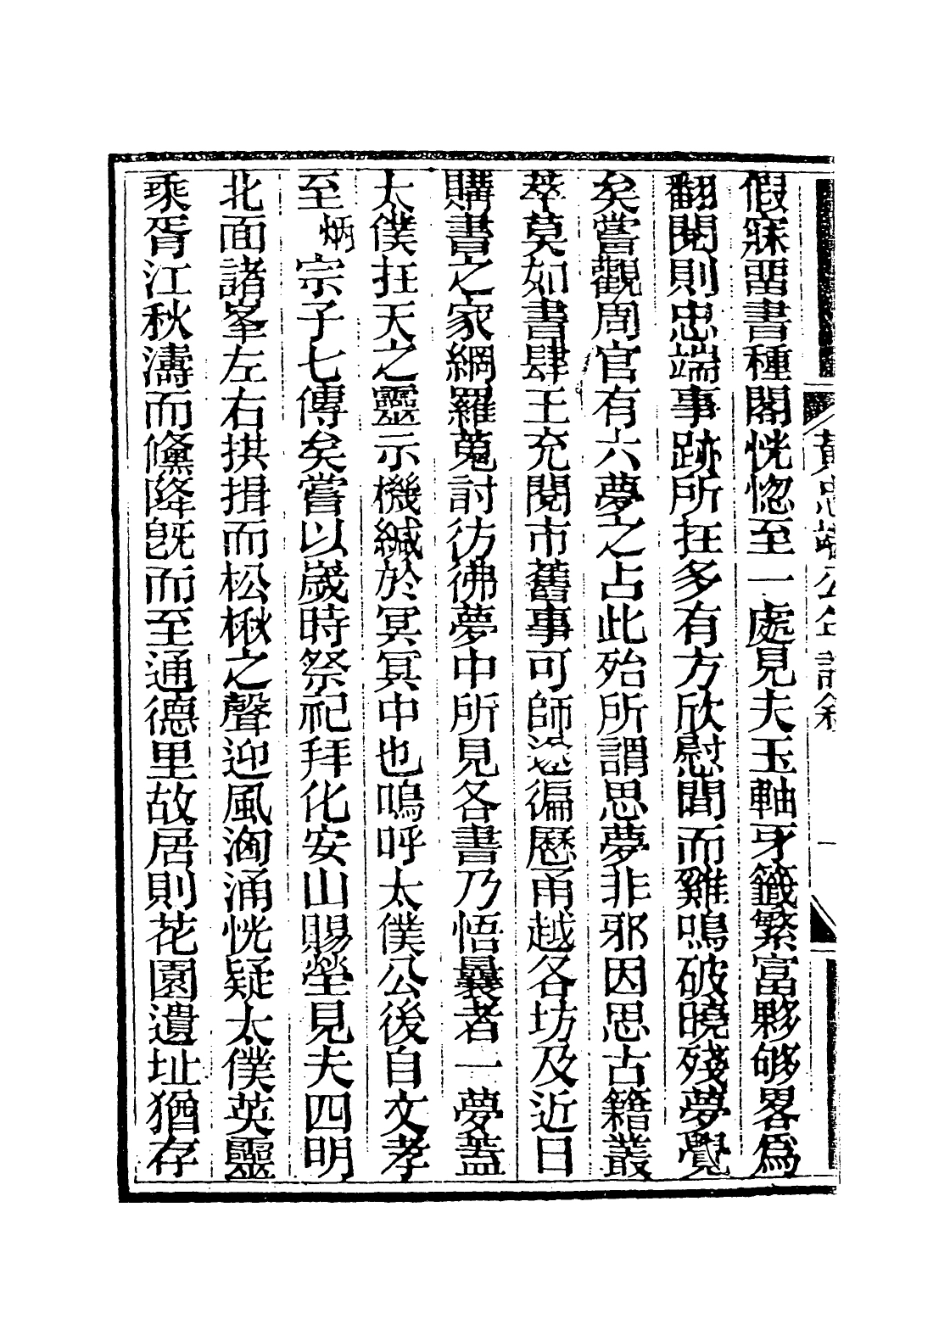 黃忠端公年譜叙
一
假寐畱書種閣恍惚至一處見夫玉軸牙籤繁富夥够畧爲
翻閱則忠端事跡所在多有方欣慰間而雞鳴破曉殘夢覺
矣嘗觀周官有六夢之占此殆所謂思夢非邪因思古籍叢
萃莫如書肆王充閱市舊事可師迻徧歷甬越各坊及近日
購書之家網羅蒐討彷彿夢中所見各書乃悟曩者一夢蓋
太僕在天之靈示機緘於冥冥中也嗚呼太僕公後自文孝
至炳宗子七傳矣嘗以歲時祭祀拜化安山賜塋見夫四明
北面諸峯左右拱揖而松楸之聲迎風洶涌恍疑太僕英靈
乘胥江秋濤而儵降旣而至通德里故居則花園遺址猶存